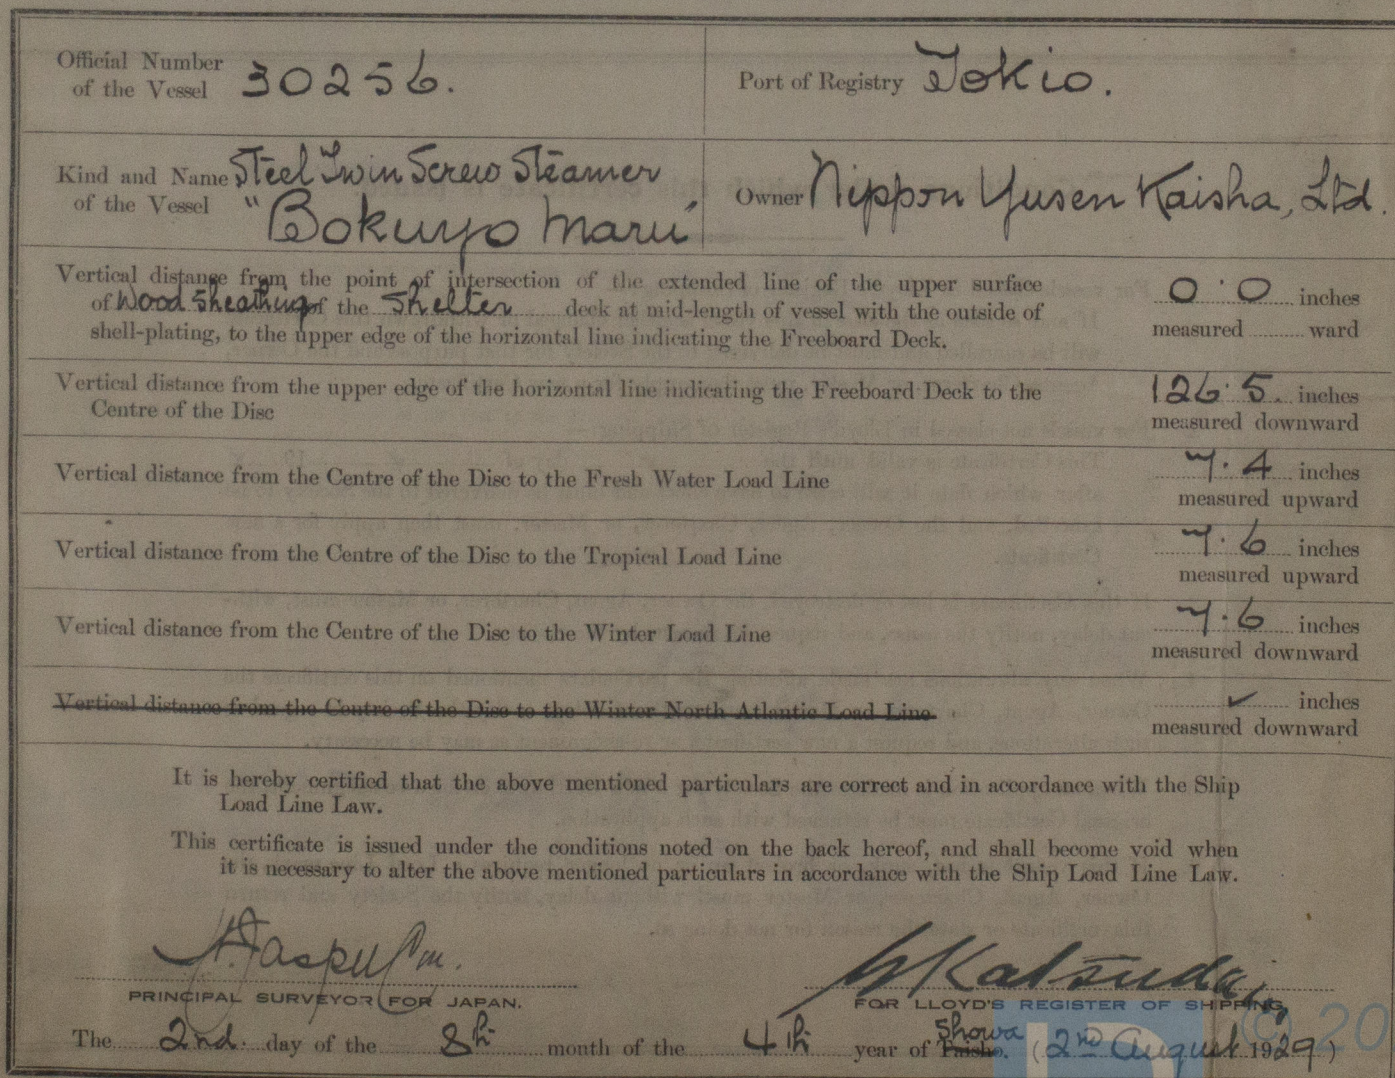 Official Number
of the Vessel 30256.
Port of Registry Tokio.
Kind and Name Steel Twin Screw Steamer
of the Vessel "Bokuyo Maru"
Owner Nippon Yusen Kaisha, Ltd.
Vertical distance from the point of intersection of the extended line of the upper surface
of Wood Sheathing of the Shelter deck at mid-length of vessel with the outside of
shell-plating, to the upper edge of the horizontal line indicating the Freeboard Deck.
0·0 inches
measured ward
Vertical distance from the upper edge of the horizontal line indicating the Freeboard Deck to the
Centre of the Disc
126·5 inches
measured downward
Vertical distance from the Centre of the Disc to the Fresh Water Load Line
7·4 inches
measured upward
Vertical distance from the Centre of the Disc to the Tropical Load Line
7·6 inches
measured upward
Vertical distance from the Centre of the Disc to the Winter Load Line
7·6 inches
measured downward
Vertical distance from the Centre of the Disc to the Winter North Atlantic Load Line
✓ inches
measured downward
It is hereby certified that the above mentioned particulars are correct and in accordance with the Ship
Load Line Law.
This certificate is issued under the conditions noted on the back hereof, and shall become void when
it is necessary to alter the above mentioned particulars in accordance with the Ship Load Line Law.
Katsuda
PRINCIPAL SURVEYOR FOR JAPAN.
FOR LLOYD'S REGISTER OF SHIPPING
The 2nd. day of the 8th month of the 4th year of Taisho. Showa (2nd August 1929)
© 20